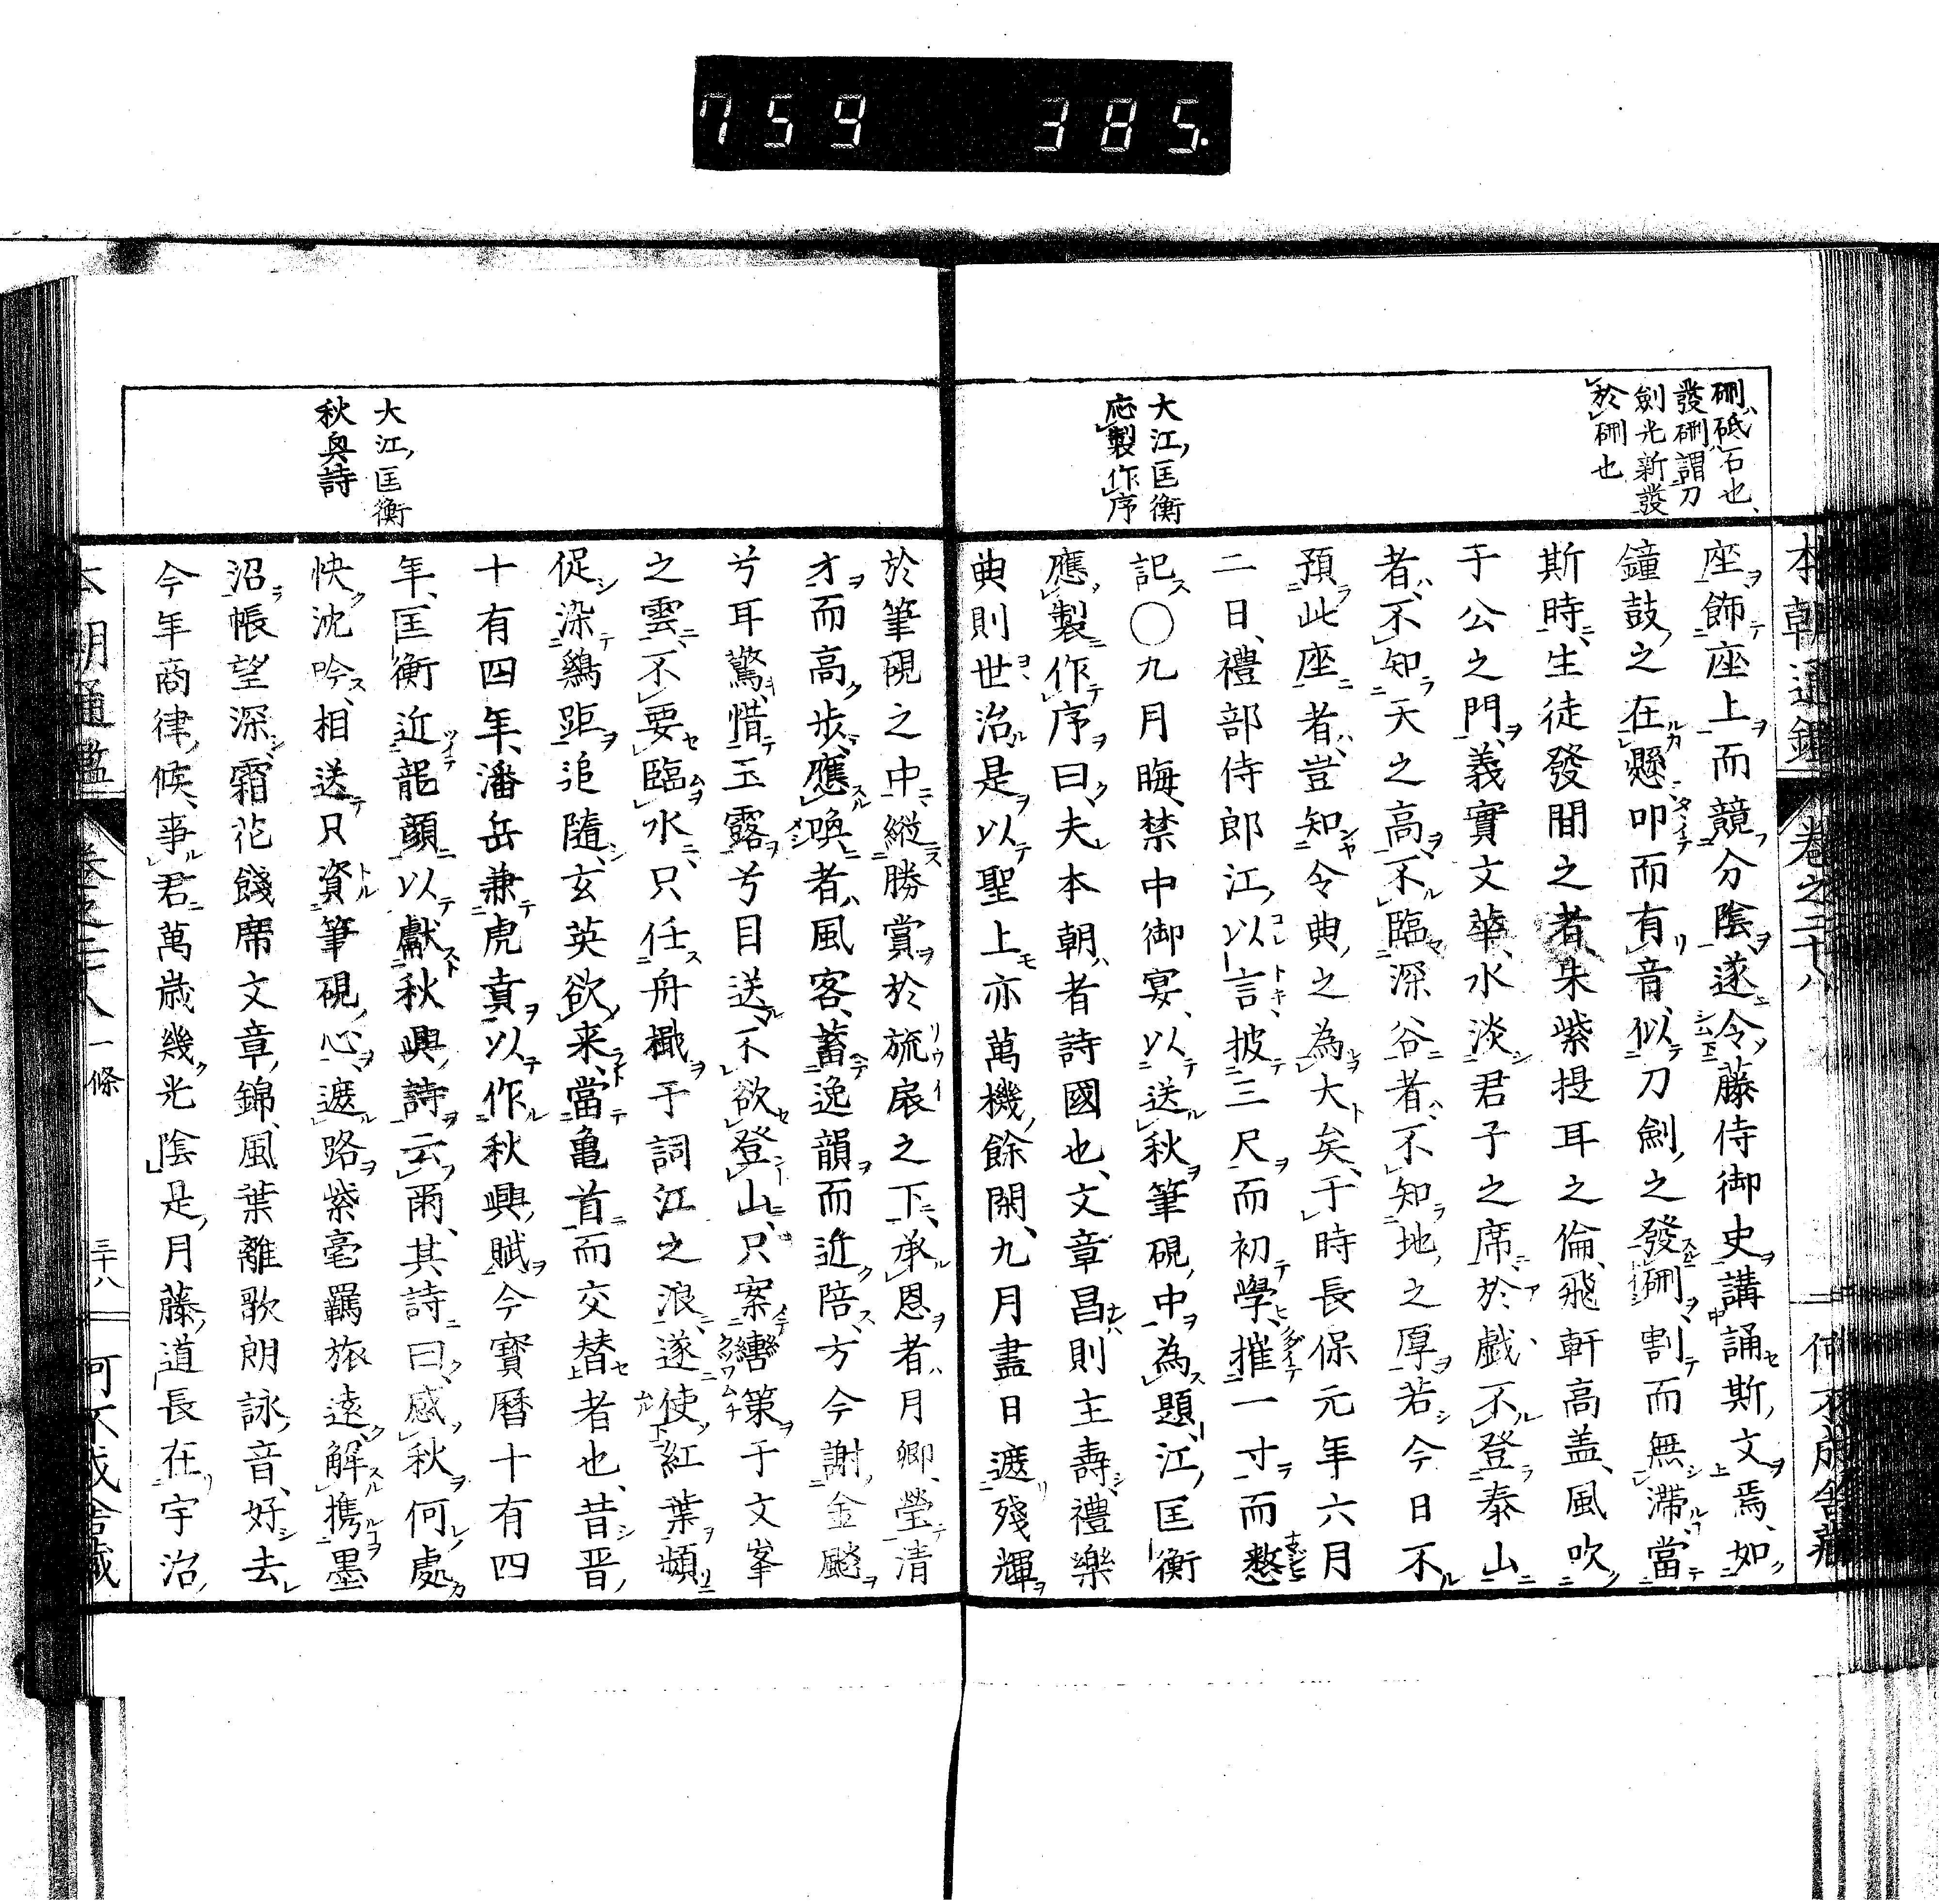 759 385.
硎砥石也
發硎謂刀
劍光新發
於硎也
大江匡衡
応製作序
本朝通鑑 卷之二十八
座飾座上而競分陰遂令藤侍御史講誦斯文焉如
鐘鼓之在懸叩而有音似刀劍之發硎割而無滯當
斯時生徒發問之者朱紫提耳之倫飛軒高盖風吹
于公之門義實文華水淡君子之席於戲不登泰山
者不知天之高不臨深谷者不知地之厚若今日不
預此座者豈知令典之為大矣于時長保元年六月
二日禮部侍郎江以言披三尺而初學摧一寸而憖
記〇九月晦禁中御宴以送秋筆硯中為題江匡衡
應製作序曰夫本朝者詩國也文章昌則主壽禮樂
典則世治是以聖上亦萬機餘閑九月盡日遮殘輝
大江匡衡
秋興詩
於筆硯之中縱勝賞於旒扆之下承恩者月卿瑩清
才而高步應喚者風客蓄逸韻而近陪方今謝金颷
兮耳驚惜玉露兮目送不欲登山只案轡策于文峯
之雲不要臨水只任舟檝于詞江之浪遂使紅葉頻
促染鷄距追隨玄英欲来當亀首而交替者也昔晋
十有四年潘岳兼虎賁以作秋興賦今寳曆十有四
年匡衡近龍顔以獻秋興詩云爾其詩曰感秋何處
怏沈吟相送只資筆硯心遮路紫毫羈旅遠解携墨
沼帳望深霜花餞席文章錦風葉離歌朗詠音好去
今年商律候事君萬歳幾光陰是月藤道長在宇治
本朝通鑑 卷之二十八 一條 三十八